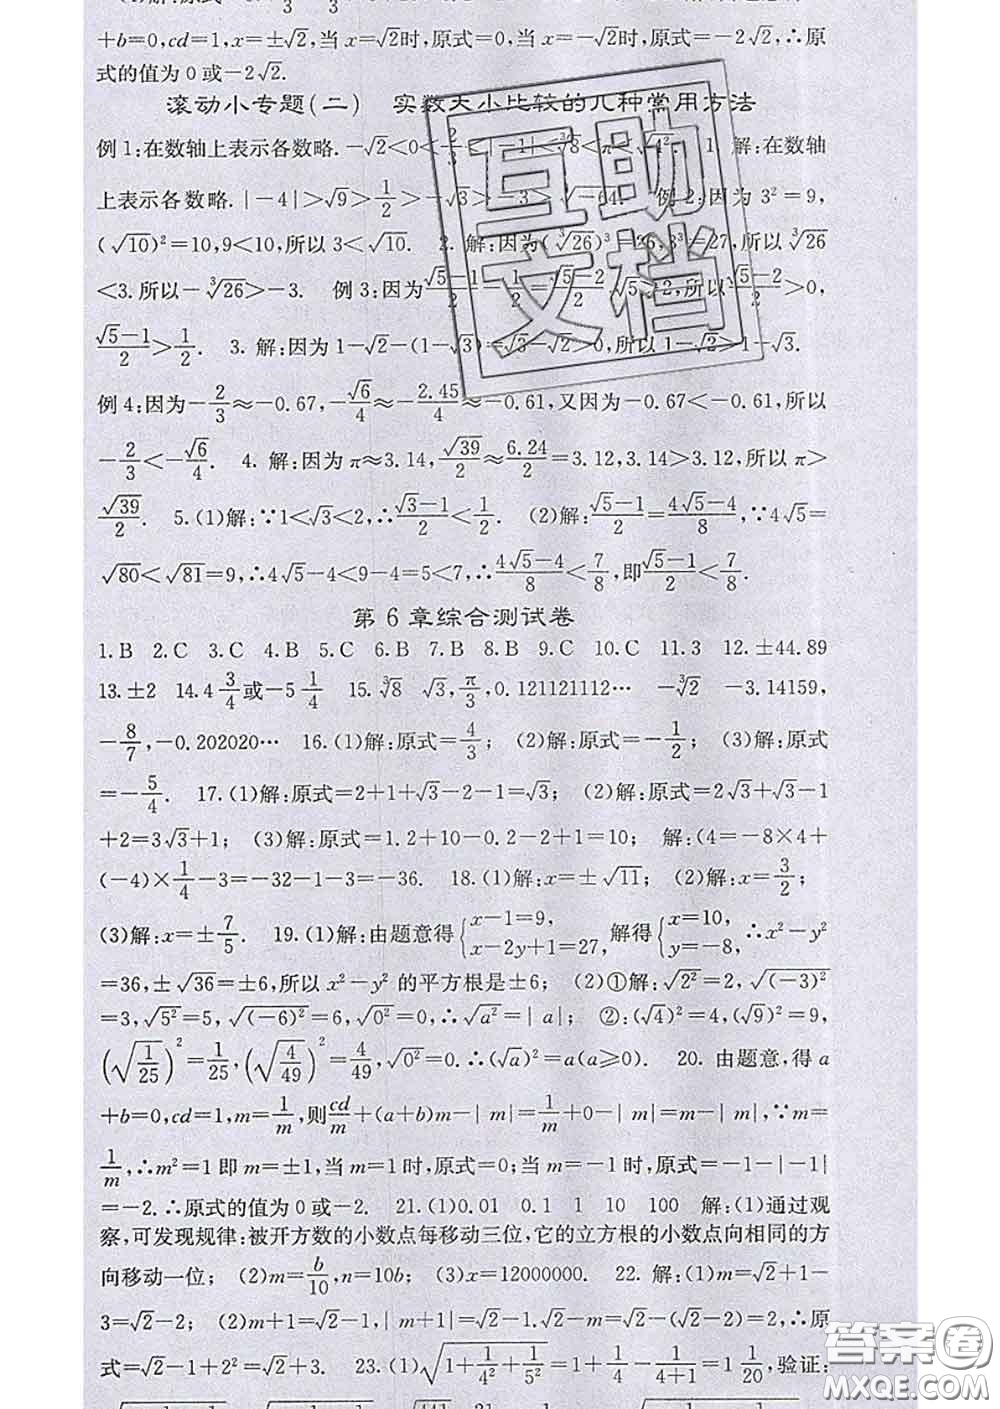 +b=0,cd=1,x=±√2,当x=√2时,原式=0,当x=-√2时,原式=-2√2,∴原
式的值为0或-2√2.
滚动小专题(二) 实数大小比较的几种常用方法
例1:在数轴上表示各数略.-√2<0<2/3<|-1|<∛8<π<√4². 1. 解:在数轴
上表示各数略.|-4|>√9>1/2>-√3>-3>-64. 例2:因为3²=9,
(√10)²=10,9<10,所以3<√10. 2. 解:因为(∛26)³=26,3³=27,所以∛26
<3.所以-∛26>-3. 例3:因为(√5-1)/2-1/2=(√5-2)/2,√5>2,所以(√5-2)/2>0,
(√5-1)/2>1/2. 3. 解:因为1-√2-(1-√3)=√3-√2>0,所以1-√2>1-√3.
例4:因为-2/3≈-0.67,-√6/4≈-2.45/4≈-0.61,又因为-0.67<-0.61,所以
-2/3<-√6/4. 4. 解:因为π≈3.14,√39/2≈6.24/2=3.12,3.14>3.12,所以π>
√39/2. 5.(1)解:∵1<√3<2,∴(√3-1)/2<1/2. (2)解:(√5-1)/2=(4√5-4)/8,∵4√5=
√80<√81=9,∴4√5-4<9-4=5<7,∴(4√5-4)/8<7/8,即(√5-1)/2<7/8.
第6章综合测试卷
1.B 2.C 3.C 4.B 5.C 6.B 7.B 8.B 9.C 10.C 11.3 12.±44.89
13.±2 14.4 3/4或-5 1/4 15.∛8 √3,π/3,0.121121112… -∛2 -3.14159,
-8/7,-0.202020… 16.(1)解:原式=4/3; (2)解:原式=-1/2; (3)解:原式
=-5/4. 17.(1)解:原式=2+1+√3-2-1=√3; (2)解:原式=2√3+√3-1
+2=3√3+1; (3)解:原式=1.2+10-0.2-2+1=10; 解:(4=-8×4+
(-4)×1/4-3=-32-1-3=-36. 18.(1)解:x=±√11; (2)解:x=3/2;
(3)解:x=±7/5. 19.(1)解:由题意得{x-1=9, x-2y+1=27,解得{x=10, y=-8,∴x²-y²
=36,±√36=±6,所以x²-y²的平方根是±6; (2)①解:√2²=2,√(-3)²
=3,√5²=5,√(-6)²=6,√0²=0,∴√a²=|a|; ②:(√4)²=4,(√9)²=9,
(√(1/25))²=1/25,(√(4/49))²=4/49,√0²=0.∴(√a)²=a(a≥0). 20. 由题意,得a
+b=0,cd=1,m=1/m,则cd/m+(a+b)m-|m|=1/m+0-|m|=m-|m|,∵m=
1/m,∴m²=1即m=±1,当m=1时,原式=0;当m=-1时,原式=-1-|-1|
=-2.∴原式的值为0或-2. 21.(1)0.01 0.1 1 10 100 解:(1)通过观
察,可发现规律:被开方数的小数点每移动三位,它的立方根的小数点向相同的方
向移动一位; (2)m=b/10,n=10b; (3)x=12000000. 22. 解:(1)m=√2+1-
3=√2-2; (2)m+1=√2-1,|m+1|=√2-1.√2-m=√2-(√2-2)=2,∴原
式=√2-1+2²=√2+3. 23.(1)√(1+1/4²+1/5²)=1+1/4-1/(4+1)=1 1/20,验证:
互助
文档
答案卷
MXQE.COM